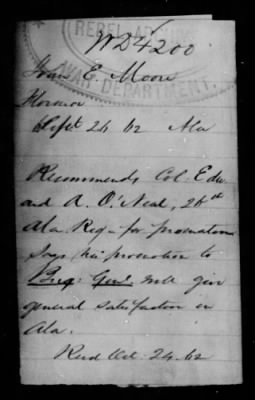 REBEL ARCHIVES
WD 4200
WAR DEPARTMENT
John E. Moore
Florence
Sept 24 62 Ala
Recommends Col: Edw
ard A. O'Neal, 26th
Ala Reg - for promotion
Says his promotion to
Brig: Genl will give
general satisfaction in
Ala.
Recd Oct. 24. 62